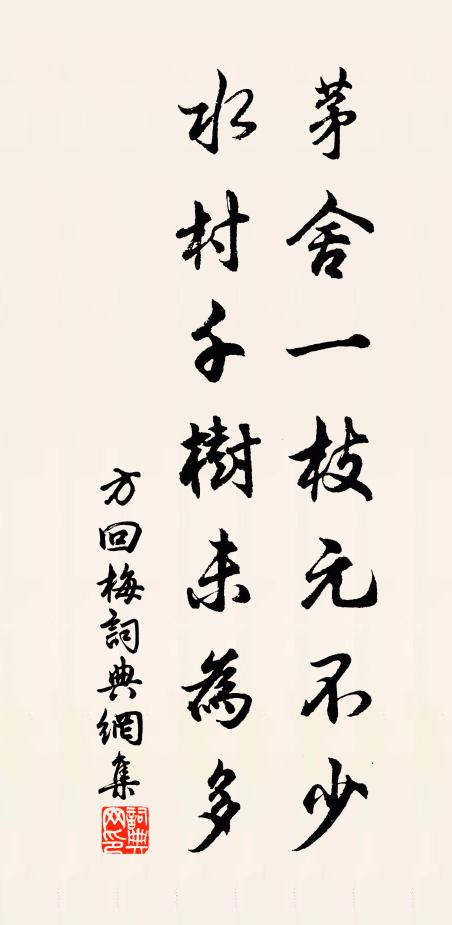 茅舍一枝元不少
水村千樹未為多
方回梅詞典網集
詞典
网印